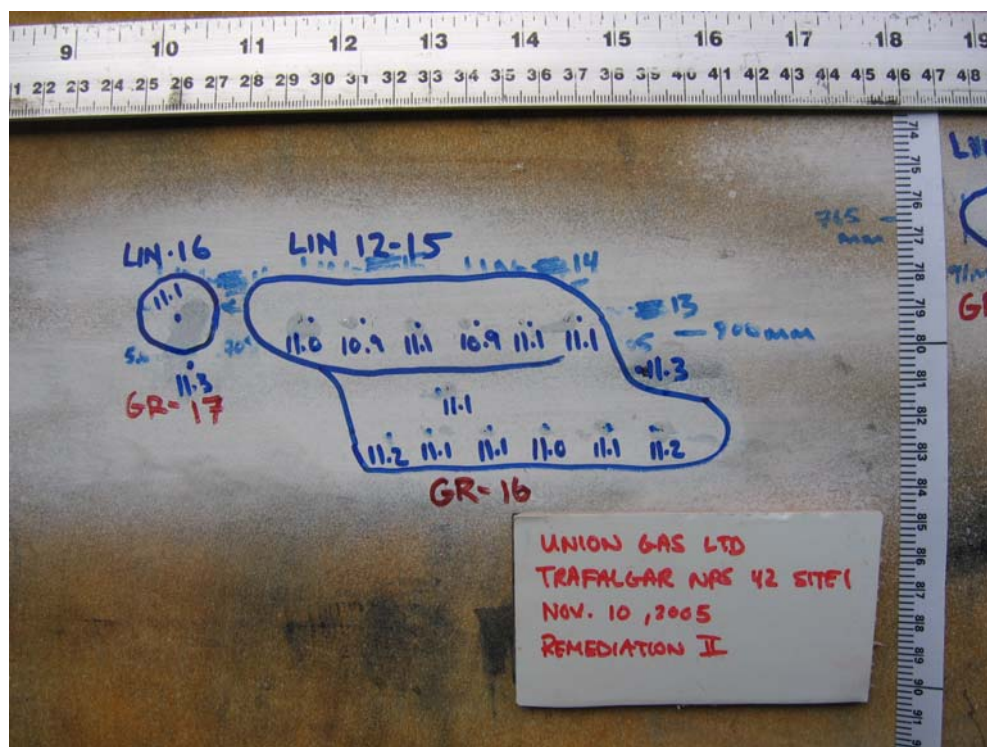 9 10 11 12 13 14 15 16 17 18 19
1 22 23 24 25 26 27 28 29 30 31 32 33 34 35 36 37 38 39 40 41 42 43 44 45 46 47 48
74
75
76
77
78
79
80
81
82
83
84
85
86
87
88
89
90
91
LIN
765
mm
LIN·16
LIN 12-15
14
13
900mm
11.1
11.0 10.9 11.1 10.9 11.1 11.1
11.3
11.3
GR=17
11.1
11.2 11.1 11.1 11.0 11.1 11.2
GR=16
UNION GAS LTD
TRAFALGAR NPS 42 SITE 1
NOV. 10, 2005
REMEDIATION II